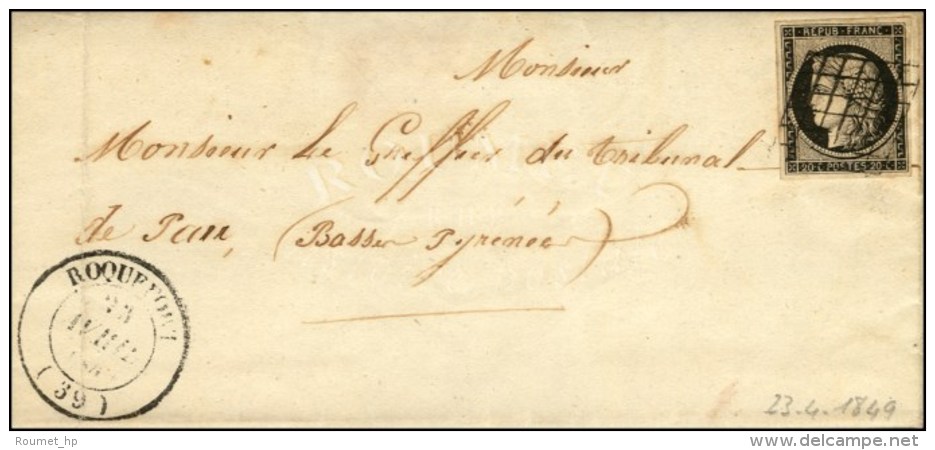 REPUB·FRANC·
20·C POSTES 20·C
Monsieur
Monsieur le Greffier du tribunal
de Pau, (Basses Pyrénées)
ROQUEFORT
23
AVRIL
(39)
23.4.1849
Roumet_hp
delcampe.net